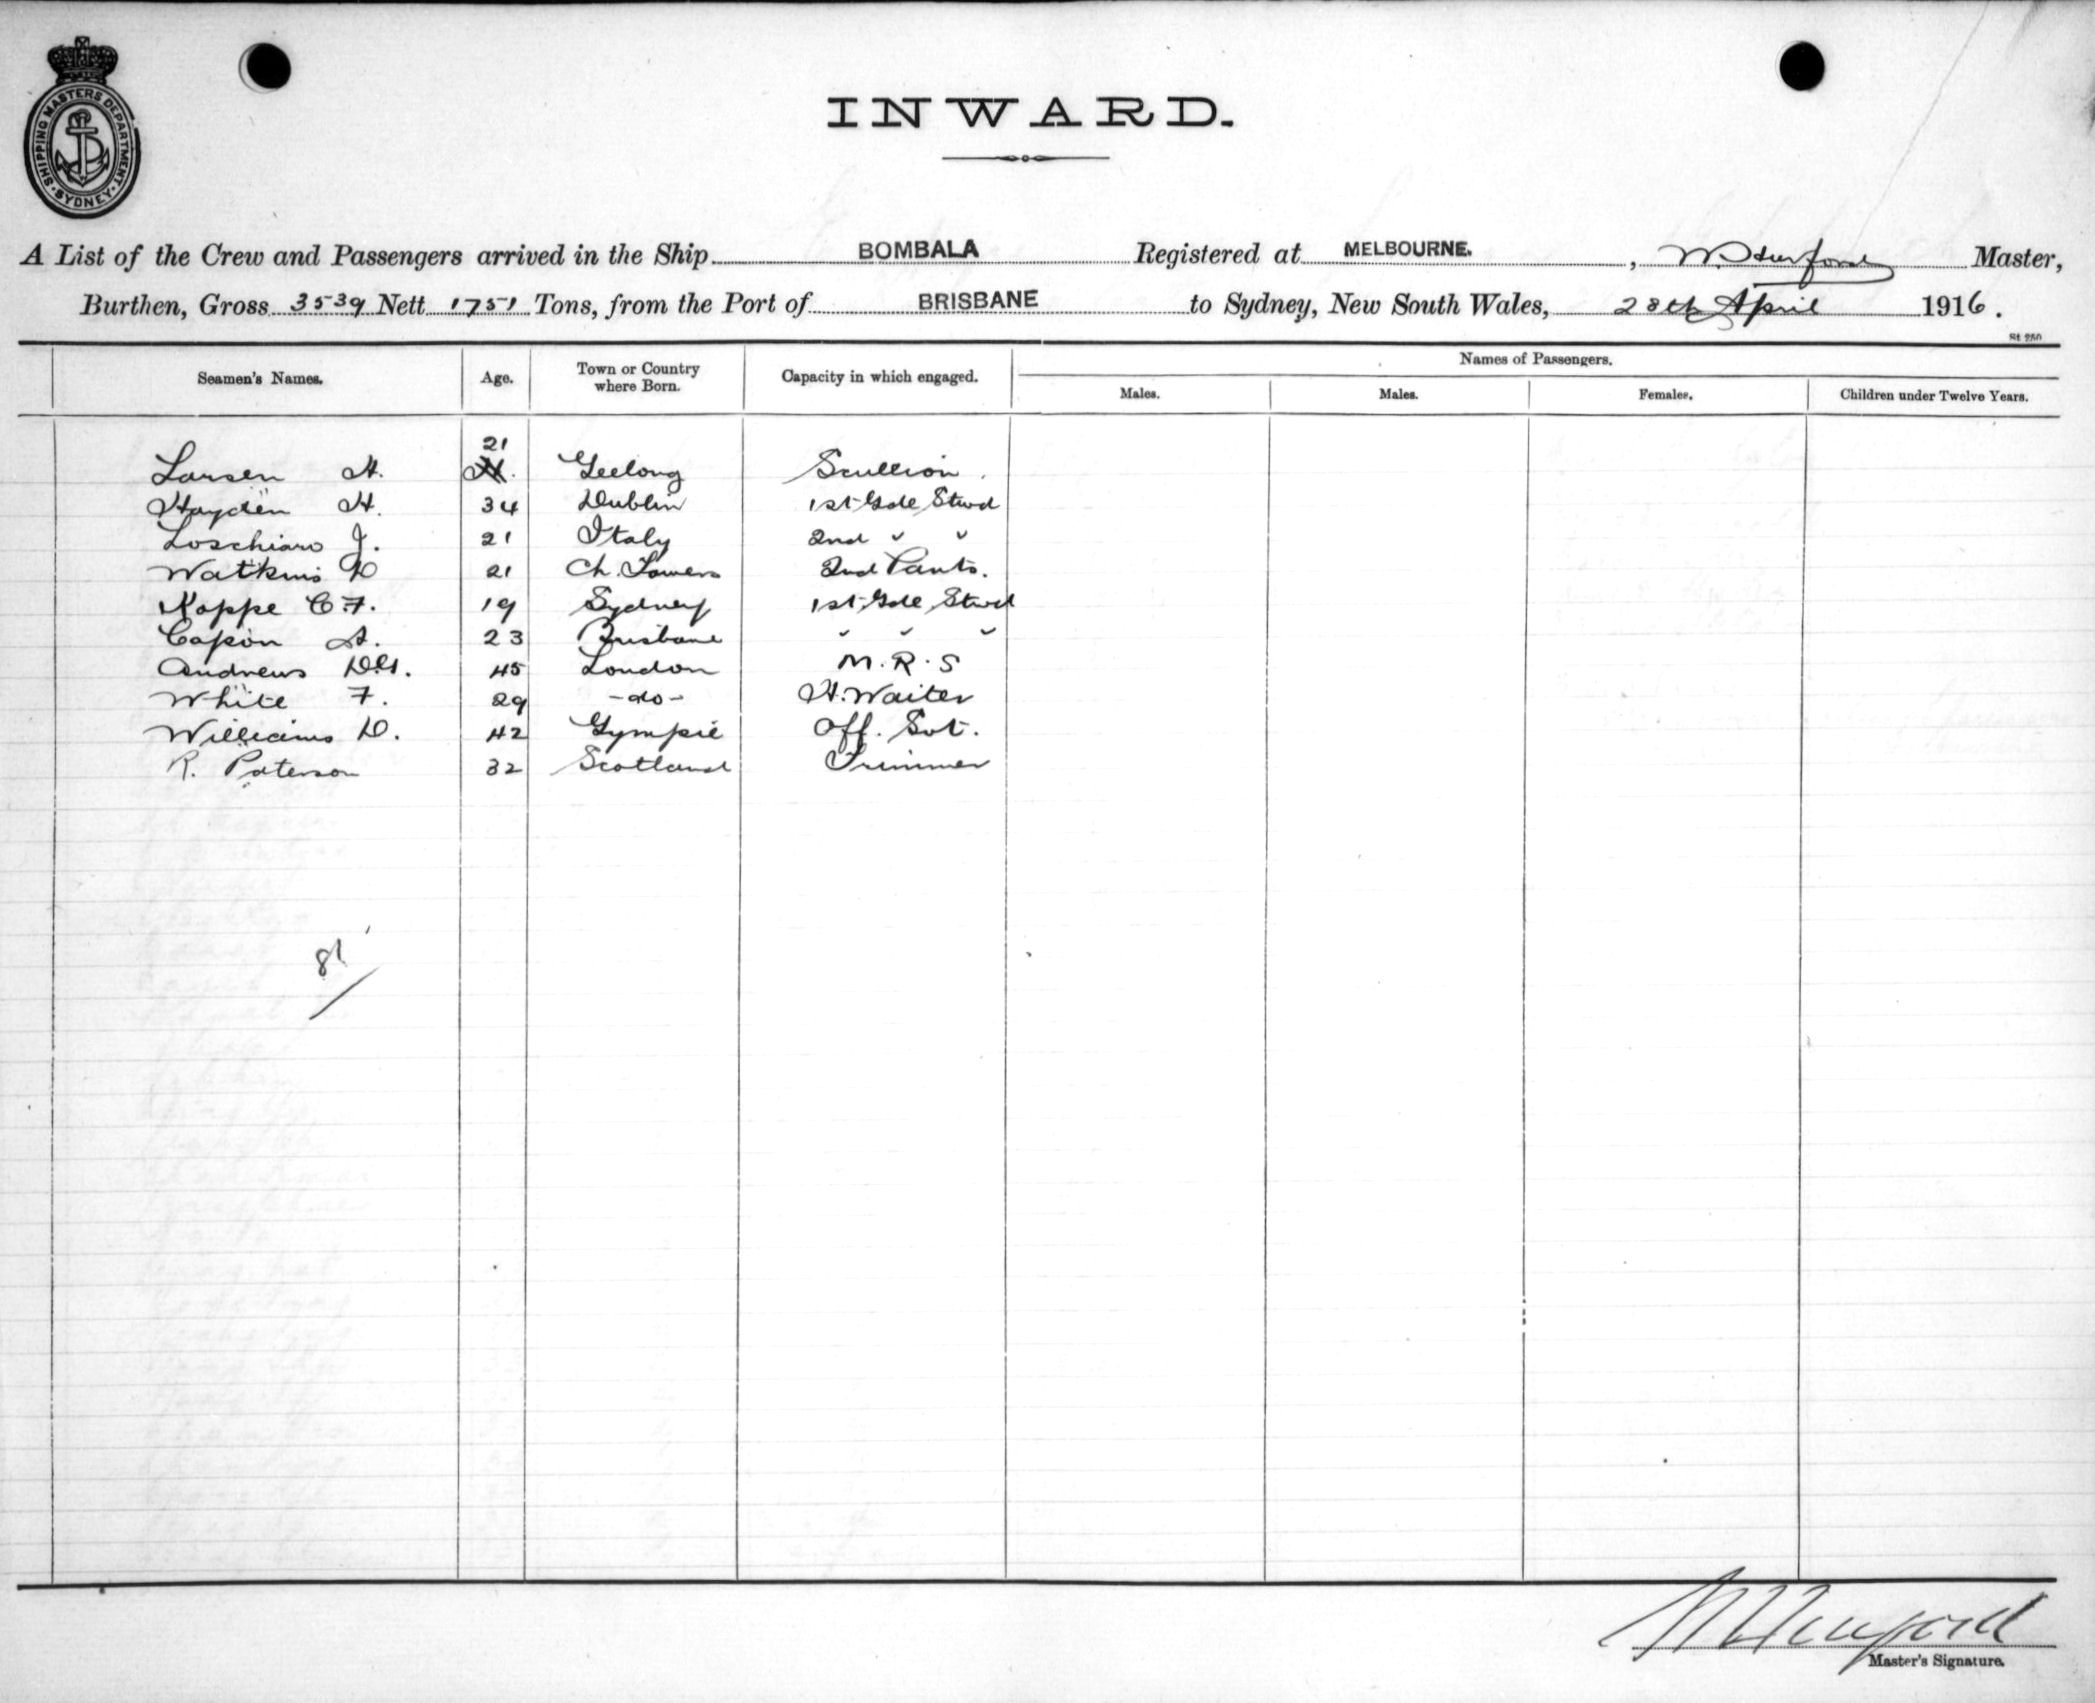 SHIPPING MASTERS DEPARTMENT
SYDNEY
INWARD.
A List of the Crew and Passengers arrived in the Ship BOMBALA Registered at MELBOURNE. , W. Hurford Master,
Burthen, Gross 3539 Nett 1751 Tons, from the Port of BRISBANE to Sydney, New South Wales, 28th April 1916.
St 250
Names of Passengers.
Seamen's Names. Age. Town or Country where Born. Capacity in which engaged. Males. Males. Females. Children under Twelve Years.
21
Larsen H. Geelong Scullion
Hayden H. 34 Dublin 1st Gde Stwd
Loschiavo J. 21 Italy 2nd " "
Watkins 21 Ch. Towers 2nd Pants.
Koppe C. F. 19 Sydney 1st Gde Stwd
Capon A. 23 Brisbane " " "
Andrews 45 London M. R. S
White F. 29 -do- H. Waiter
Williams D. 42 Gympie Off. Svt.
R. Paterson 32 Scotland Trimmer
81
W Hurford
Master's Signature.